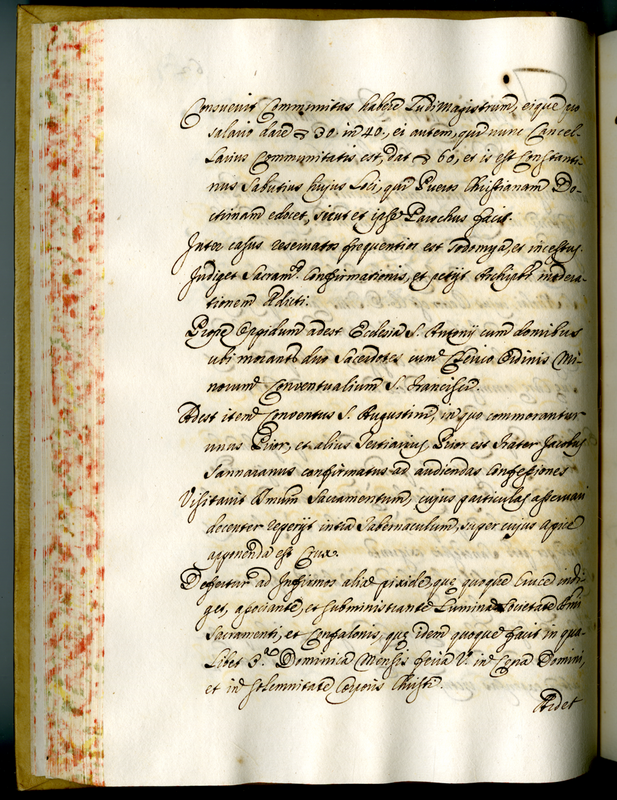 Consuevit Communitas habere Ludi Magistrum, eique pro
salario dare 30. in 40., ei autem, qui nunc Cancel-
larius Communitatis est, dat 60, et is est Constanti-
nus Sabutius hujus Loci, qui Pueros Christianam Do-
ctrinam edocet, sicut et ipse Parochus facit.
Inter casus reservatos frequentior est et incestus.
Indiget Sacram. Confirmationis, et petijt modera-
tionem Edicti.
Prope Oppidum adest Ecclesia S. Antonij cum domibus
ubi morantr duo Sacerdotes cum Clerico Ordinis Mi-
norum Conventualium S. Francisci.
Adest item Conventus S. Augustini, in quo commorantur
unus Prior, et alius Tertiarius, Prior est Frater Jacobus
Sannazanus confirmatus ad audiendas Confessiones
Visitavit Smum Sacramentum, cujus particulas asservari
decenter reperijt intra Tabernaculum, super cujus apice
apponenda est Crux.
Defertur ad Infirmos alia pixide, que quoque Cruce indi-
get, associante, et subministrante Lumina Societate Smi
Sacramenti, et Confalonis, que idem quoque facit in qua-
libet 3.a Dominica Mensis feria V. in Cena Domini,
et in solemnitate Corporis Christi.
Ardet